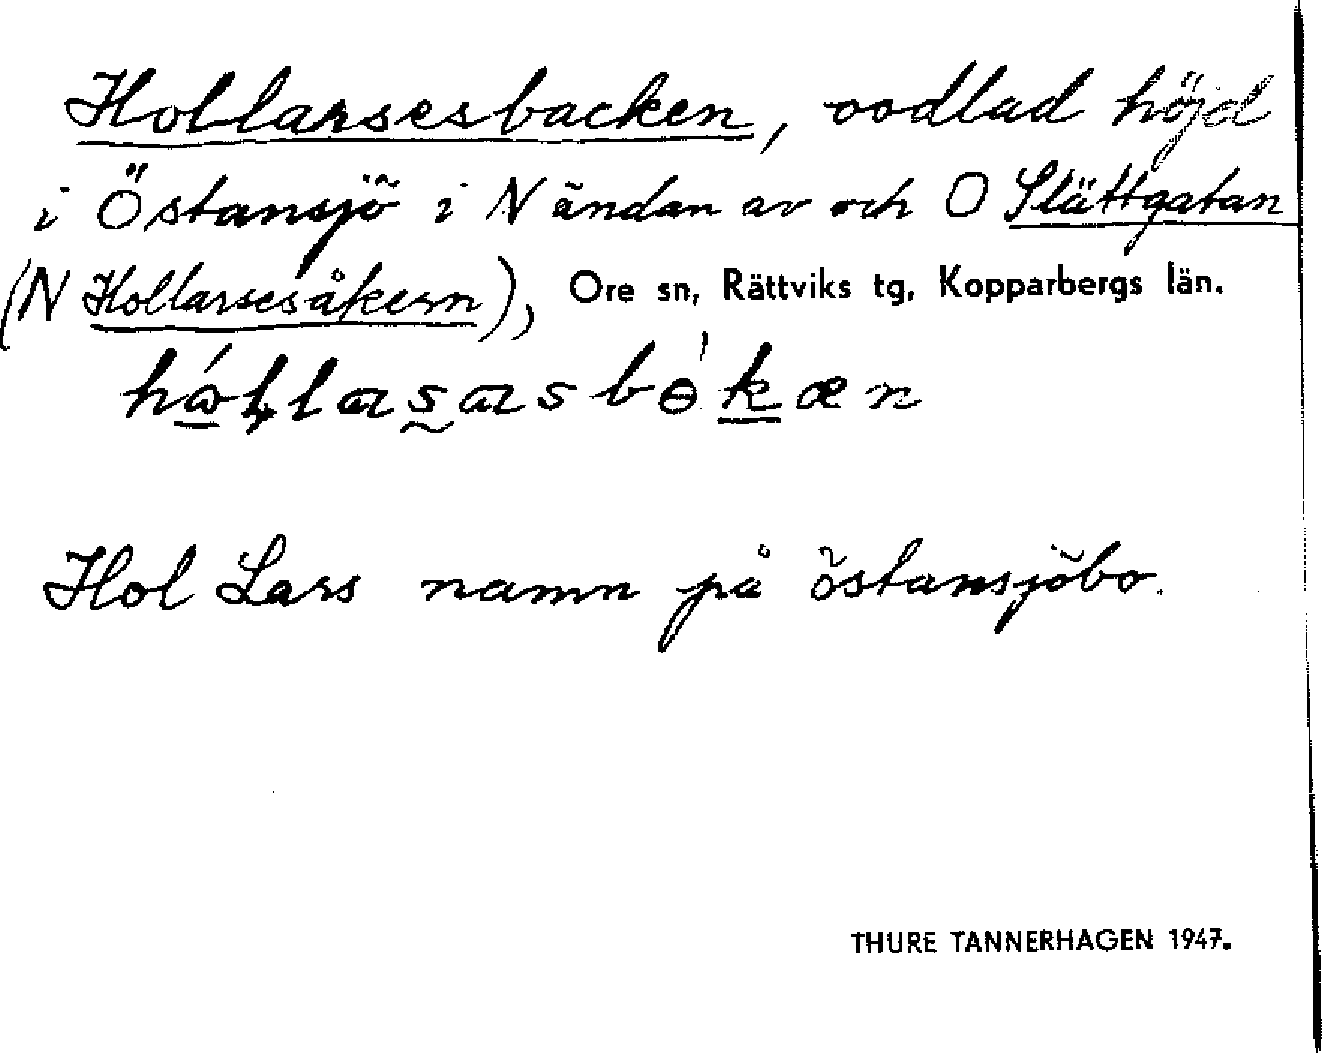 Hollarsesbacken, oodlad höjd
i Östansjö i N ändan av och O Slättgatan
(N Hollarsesåkern), Ore sn, Rättviks tg, Kopparbergs län.
Hol Lars namn på östansjöbo.
THURE TANNERHAGEN 1947.